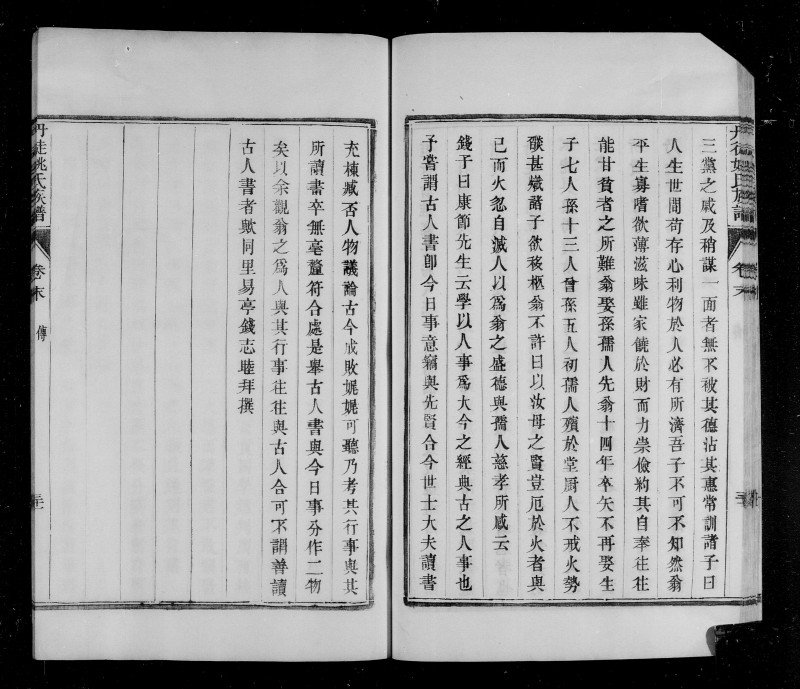 丹徒姚氏族譜
卷末
三黨之戚及稍謀一面者無不被其德沾其惠常訓諸子曰
人生世間苟存心利物於人必有所濟吾子不可不知然翁
平生寡嗜欲薄滋味雖家饒於財而力崇儉約其自奉往往
能甘貧者之所難翁娶孫孺人先翁十四年卒矢不再娶生
子七人孫十三人曾孫五人初孺人殯於堂厨人不戒火勢
燄甚熾諸子欲移柩翁不許曰以汝母之賢豈厄於火者與
已而火忽自滅人以為翁之盛德與孺人慈孝所感云
錢子曰康節先生云學以人事為大今之經典古之人事也
予嘗謂古人書即今日事意竊與先賢合今世士大夫讀書
充棟臧否人物議論古今成敗娓娓可聽乃考其行事與其
所讀書卒無毫釐符合處是舉古人書與今日事分作二物
矣以余觀翁之為人與其行事往往與古人合可不謂善讀
古人書者歟同里易亭錢志睦拜撰
丹徒姚氏族譜
卷末
傳